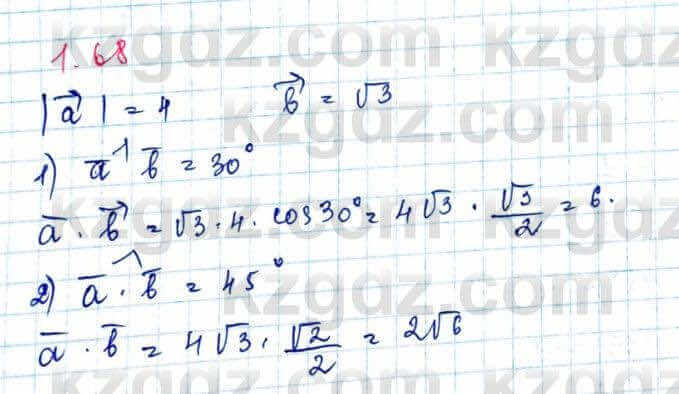 1.68
|a⃗| = 4   b⃗ = √3
1) a̅ ^ b̅ = 30°
a̅ · b⃗ = √3 · 4 · cos 30° = 4√3 · √3/2 = 6.
2) a̅ ^ · b̅ = 45°
a̅ · b̅ = 4√3 · √2/2 = 2√6
kzgdz.com
kzgdz.com
kzgdz.com
kzgdz.com
kzgdz.com
kzgdz.com